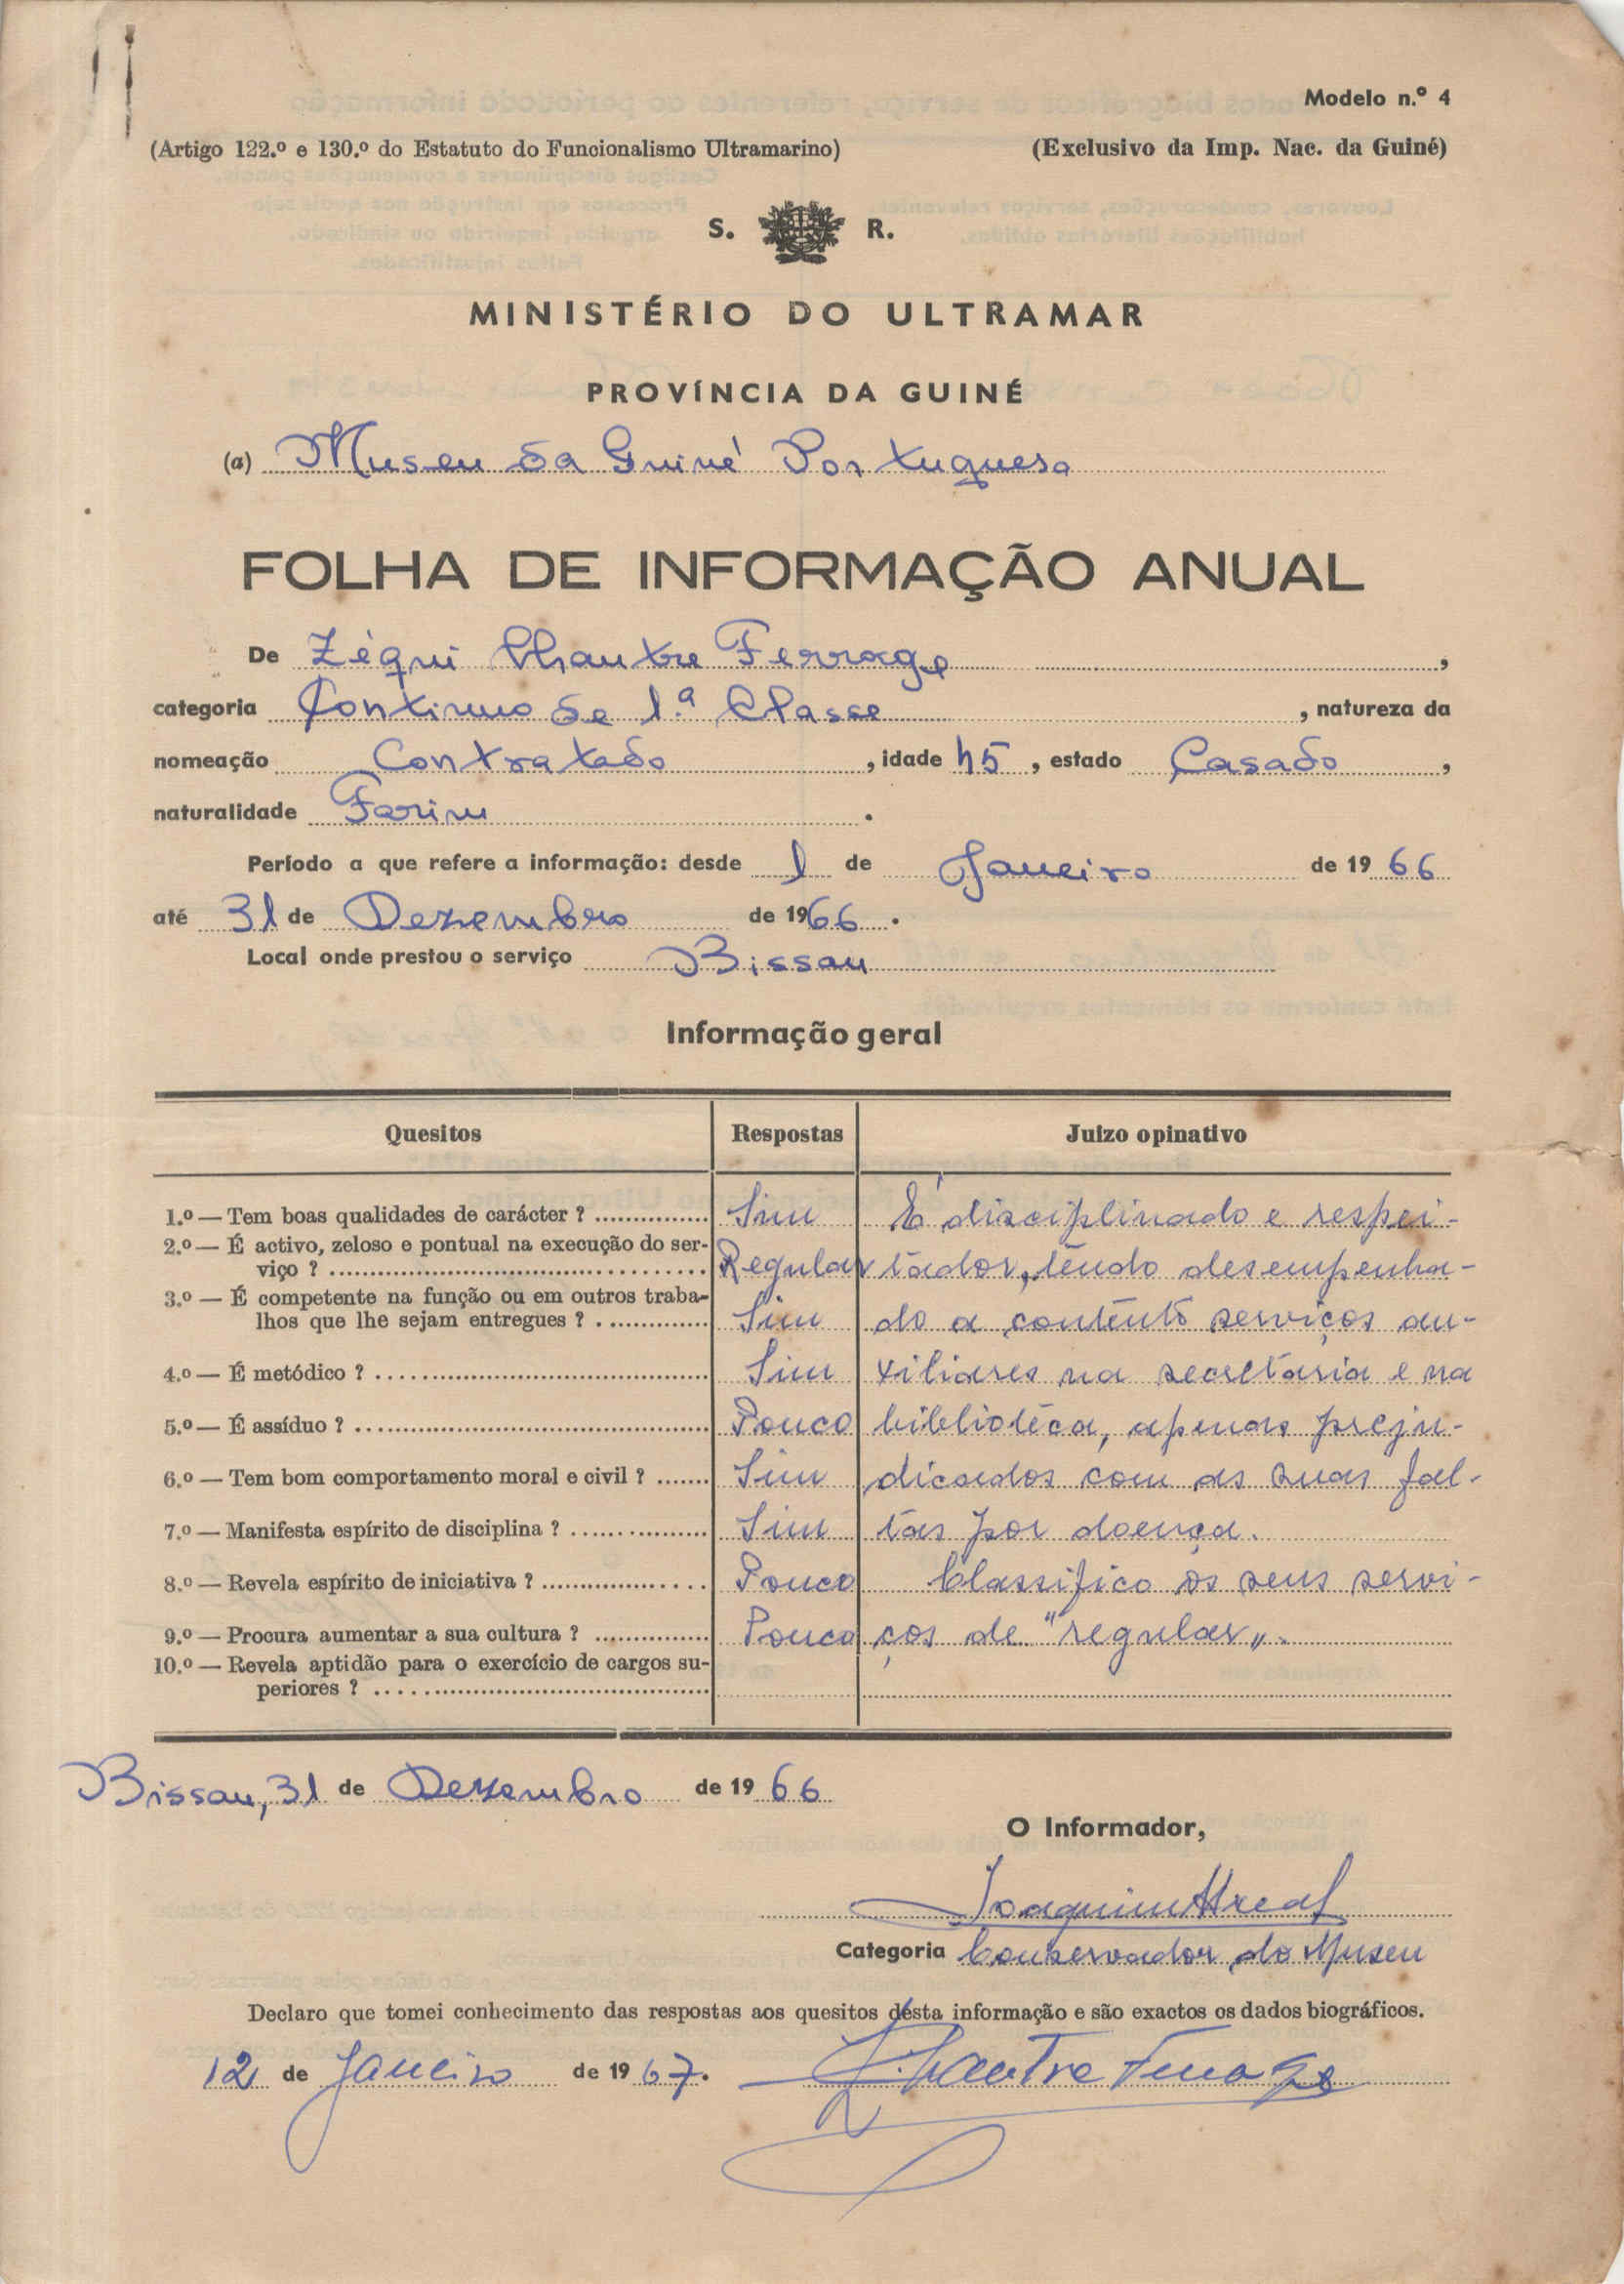 Modelo n.º 4
(Artigo 122.º e 130.º do Estatuto do Funcionalismo Ultramarino) (Exclusivo da Imp. Nac. da Guiné)
S. R.
MINISTÉRIO DO ULTRAMAR
PROVÍNCIA DA GUINÉ
(a) Museu da Guiné Portuguesa
FOLHA DE INFORMAÇÃO ANUAL
De Zéqui Chantre Ferrage,
categoria Contínuo de 1.ª Classe, natureza da
nomeação Contratado, idade 45, estado Casado,
naturalidade Farim.
Período a que refere a informação: desde 1 de Janeiro de 1966
até 31 de Dezembro de 1966.
Local onde prestou o serviço Bissau
Informação geral
Quesitos Respostas Juizo opinativo
1.º — Tem boas qualidades de carácter ? Sim É disciplinado e respei-
2.º — É activo, zeloso e pontual na execução do ser-
viço ? Regular tador, tendo desempenha-
3.º — É competente na função ou em outros traba-
lhos que lhe sejam entregues ? Sim do a contento serviços au-
4.º — É metódico ? Sim xiliares na secretaria e na
5.º — É assíduo ? Pouco biblioteca, apenas preju-
6.º — Tem bom comportamento moral e civil ? Sim dicados com as suas fal-
7.º — Manifesta espírito de disciplina ? Sim tas por doença.
8.º — Revela espírito de iniciativa ? Pouco Classifico os seus servi-
9.º — Procura aumentar a sua cultura ? Pouco ços de "regular".
10.º — Revela aptidão para o exercício de cargos su-
periores ?
Bissau, 31 de Dezembro de 1966
O Informador,
Joaquim Areal
Categoria Conservador do Museu
Declaro que tomei conhecimento das respostas aos quesitos desta informação e são exactos os dados biográficos.
12 de Janeiro de 1967. Z. Chantre Ferrage